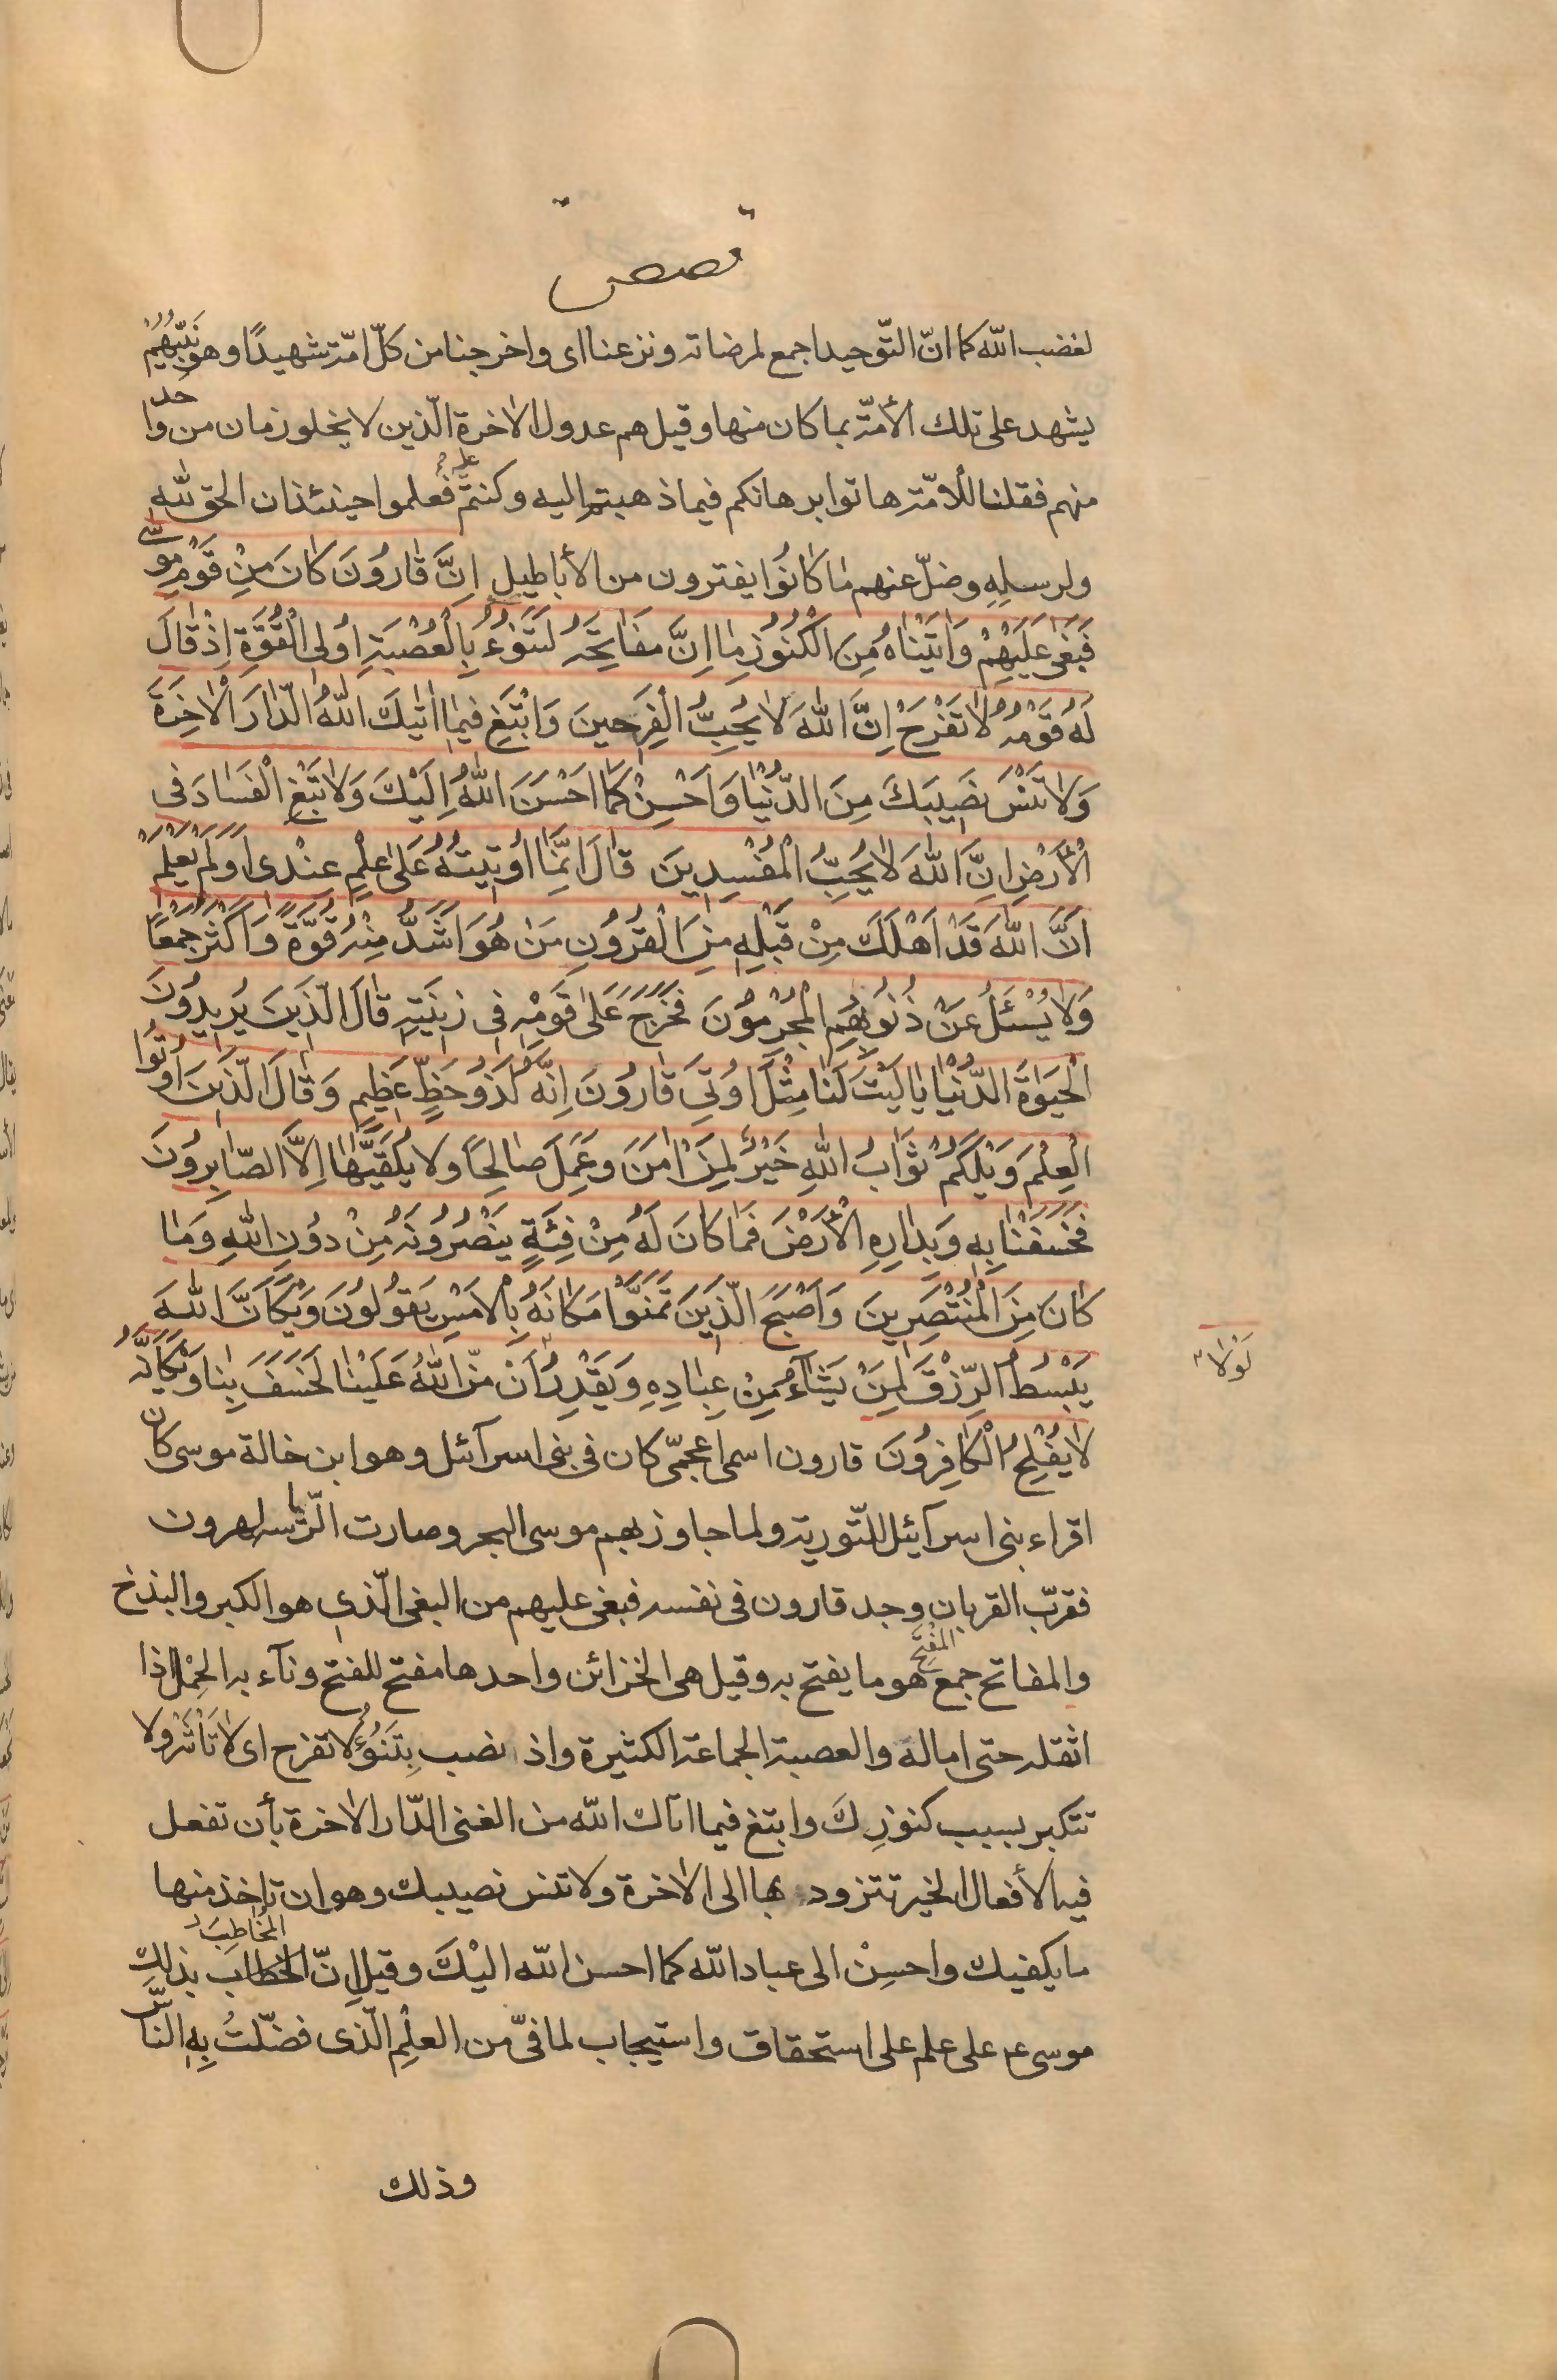 قصص
لغضب اللّه كما انّ التّوحيد اجمع لمرضاته ونزعنا اى واخرجنا من كلّ امّة شهيدًا وهو نَبِيّهُمْ
يشهد على تلك الأمّة بما كان منها وقيل هم عدول الاخرة الّذين لا يخلو زمان من واحد
منهم فقلنا للأمّة هاتوا برهانكم فيما ذهبتم اليه وكنتم عليه فعلموا حينئذ ان الحق للّه
ولرسلِهِ وضلّ عنهم مٰا كٰانُوا يفترون من الأباطيل اِنَّ قٰارُونَ كٰانَ مِنْ قَوْمِ مُوسىٰ
فَبَغىٰ عَلَيْهِمْ وَاٰتَيْنٰاهُ مِنَ الْكُنُوزِ مٰا اِنَّ مَفٰاتِحَهُ لَتَنُوءُ بِالْعُصْبَةِ اُولِى الْقُوَّةِ اِذْ قٰالَ
لَهُ قَوْمُهُ لاٰ تَفْرَحْ اِنَّ اللّٰهَ لاٰ يُحِبُّ الْفَرِحينَ وَابْتَغِ فيمٰا اٰتٰيكَ اللّٰهُ الدّٰارَ الْاٰخِرَةَ
وَلاٰ تَنْسَ نَصِيبَكَ مِنَ الدُّنْيٰا وَاَحْسِنْ كَمٰا اَحْسَنَ اللّٰهُ اِلَيْكَ وَلاٰ تَبْغِ الْفَسٰادَ فِى
الْاَرْضِ اِنَّ اللّٰهَ لاٰ يُحِبُّ الْمُفْسِدِينَ قٰالَ اِنَّمٰا اُوتِيتُهُ عَلىٰ عِلْمٍ عِنْدِى اَوَلَمْ يَعْلَمْ
اَنَّ اللّٰهَ قَدْ اَهْلَكَ مِنْ قَبْلِهِ مِنَ الْقُرُونِ مَنْ هُوَ اَشَدُّ مِنْهُ قُوَّةً وَاَكْثَرُ جَمْعًا
وَلاٰ يُسْئَلُ عَنْ ذُنُوبِهِمُ الْمُجْرِمُونَ فَخَرَجَ عَلىٰ قَوْمِهِ فِى زِينَتِهِ قٰالَ الَّذِينَ يُرِيدُونَ
الْحَيٰوةَ الدُّنْيٰا يٰا لَيْتَ لَنٰا مِثْلَ مٰا اُوتِىَ قٰارُونَ اِنَّهُ لَذُو حَظٍّ عَظِيمٍ وَقٰالَ الَّذِينَ اُوتُوا
الْعِلْمَ وَيْلَكُمْ ثَوٰابُ اللّٰهِ خَيْرٌ لِمَنْ اٰمَنَ وَعَمِلَ صٰالِحًا وَلا يُلَقّٰيهٰا اِلاَّ الصّٰابِرُونَ
فَخَسَفْنٰا بِهِ وَبِدٰارِهِ الْاَرْضَ فَمٰا كٰانَ لَهُ مِنْ فِئَةٍ يَنْصُرُونَهُ مِنْ دُونِ اللّٰهِ وَمٰا
كٰانَ مِنَ الْمُنْتَصِرِينَ وَاَصْبَحَ الَّذِينَ تَمَنَّوْا مَكٰانَهُ بِالْاَمْسِ يَقُولُونَ وَيْكَاَنَّ اللّٰهَ
يَبْسُطُ الرِّزْقَ لِمَنْ يَشٰٓاءُ مِنْ عِبٰادِهِ وَيَقْدِرُ اَنْ مَنَّ اللّٰهُ عَلَيْنٰا لَخَسَفَ بِنٰا وَيْكَاَنَّهُ
لَوْلاٰ
لاٰ يُفْلِحُ الْكٰافِرُونَ قارون اسم اعجمىّ كان فى بنى اسرآئل وهو ابن خالة موسى كان
اقراء بنى اسرآئيل للتّورية ولما جاوز بهم موسى البحر وصارت الرّياسه لهرون
فقرّب القربان وجد قارون فى نفسه فبغى عليهم من البغى الّذى هو الكبر والبذخ
والمفاتح جمع المِفْتَحِ هو ما يفتح به وقيل هى الخزائن واحدها مفتح للفتح ونآء به الحِمْل اذا
اثقله حتى اماله والعصبة الجماعة الكثيرة واذ نصب بِتَنُوءُ لا تفرح اى لاٰ تَأْشَرْ ولا
تتكبر بسبب كنوزِكَ وابتغ فيما اتاك اللّه من الغنى الدّار الاٰخرة بأن تفعل
فيه الأفعال الخير تتزود بها الى الاٰخرة ولا تنس نصيبك وهو ان تاخذ منها
ما يكفيك واحسِنْ الى عباد اللّه كما احسن اللّه اليْكَ وقيل اِنّ الخطاب المُخٰاطِبَ بذلِكِ
موسى ع على علم على استحقاق واستيجاب لما فىّ من العلْمِ الّذى فضّلتُ بِهِ النّاس
وذلك